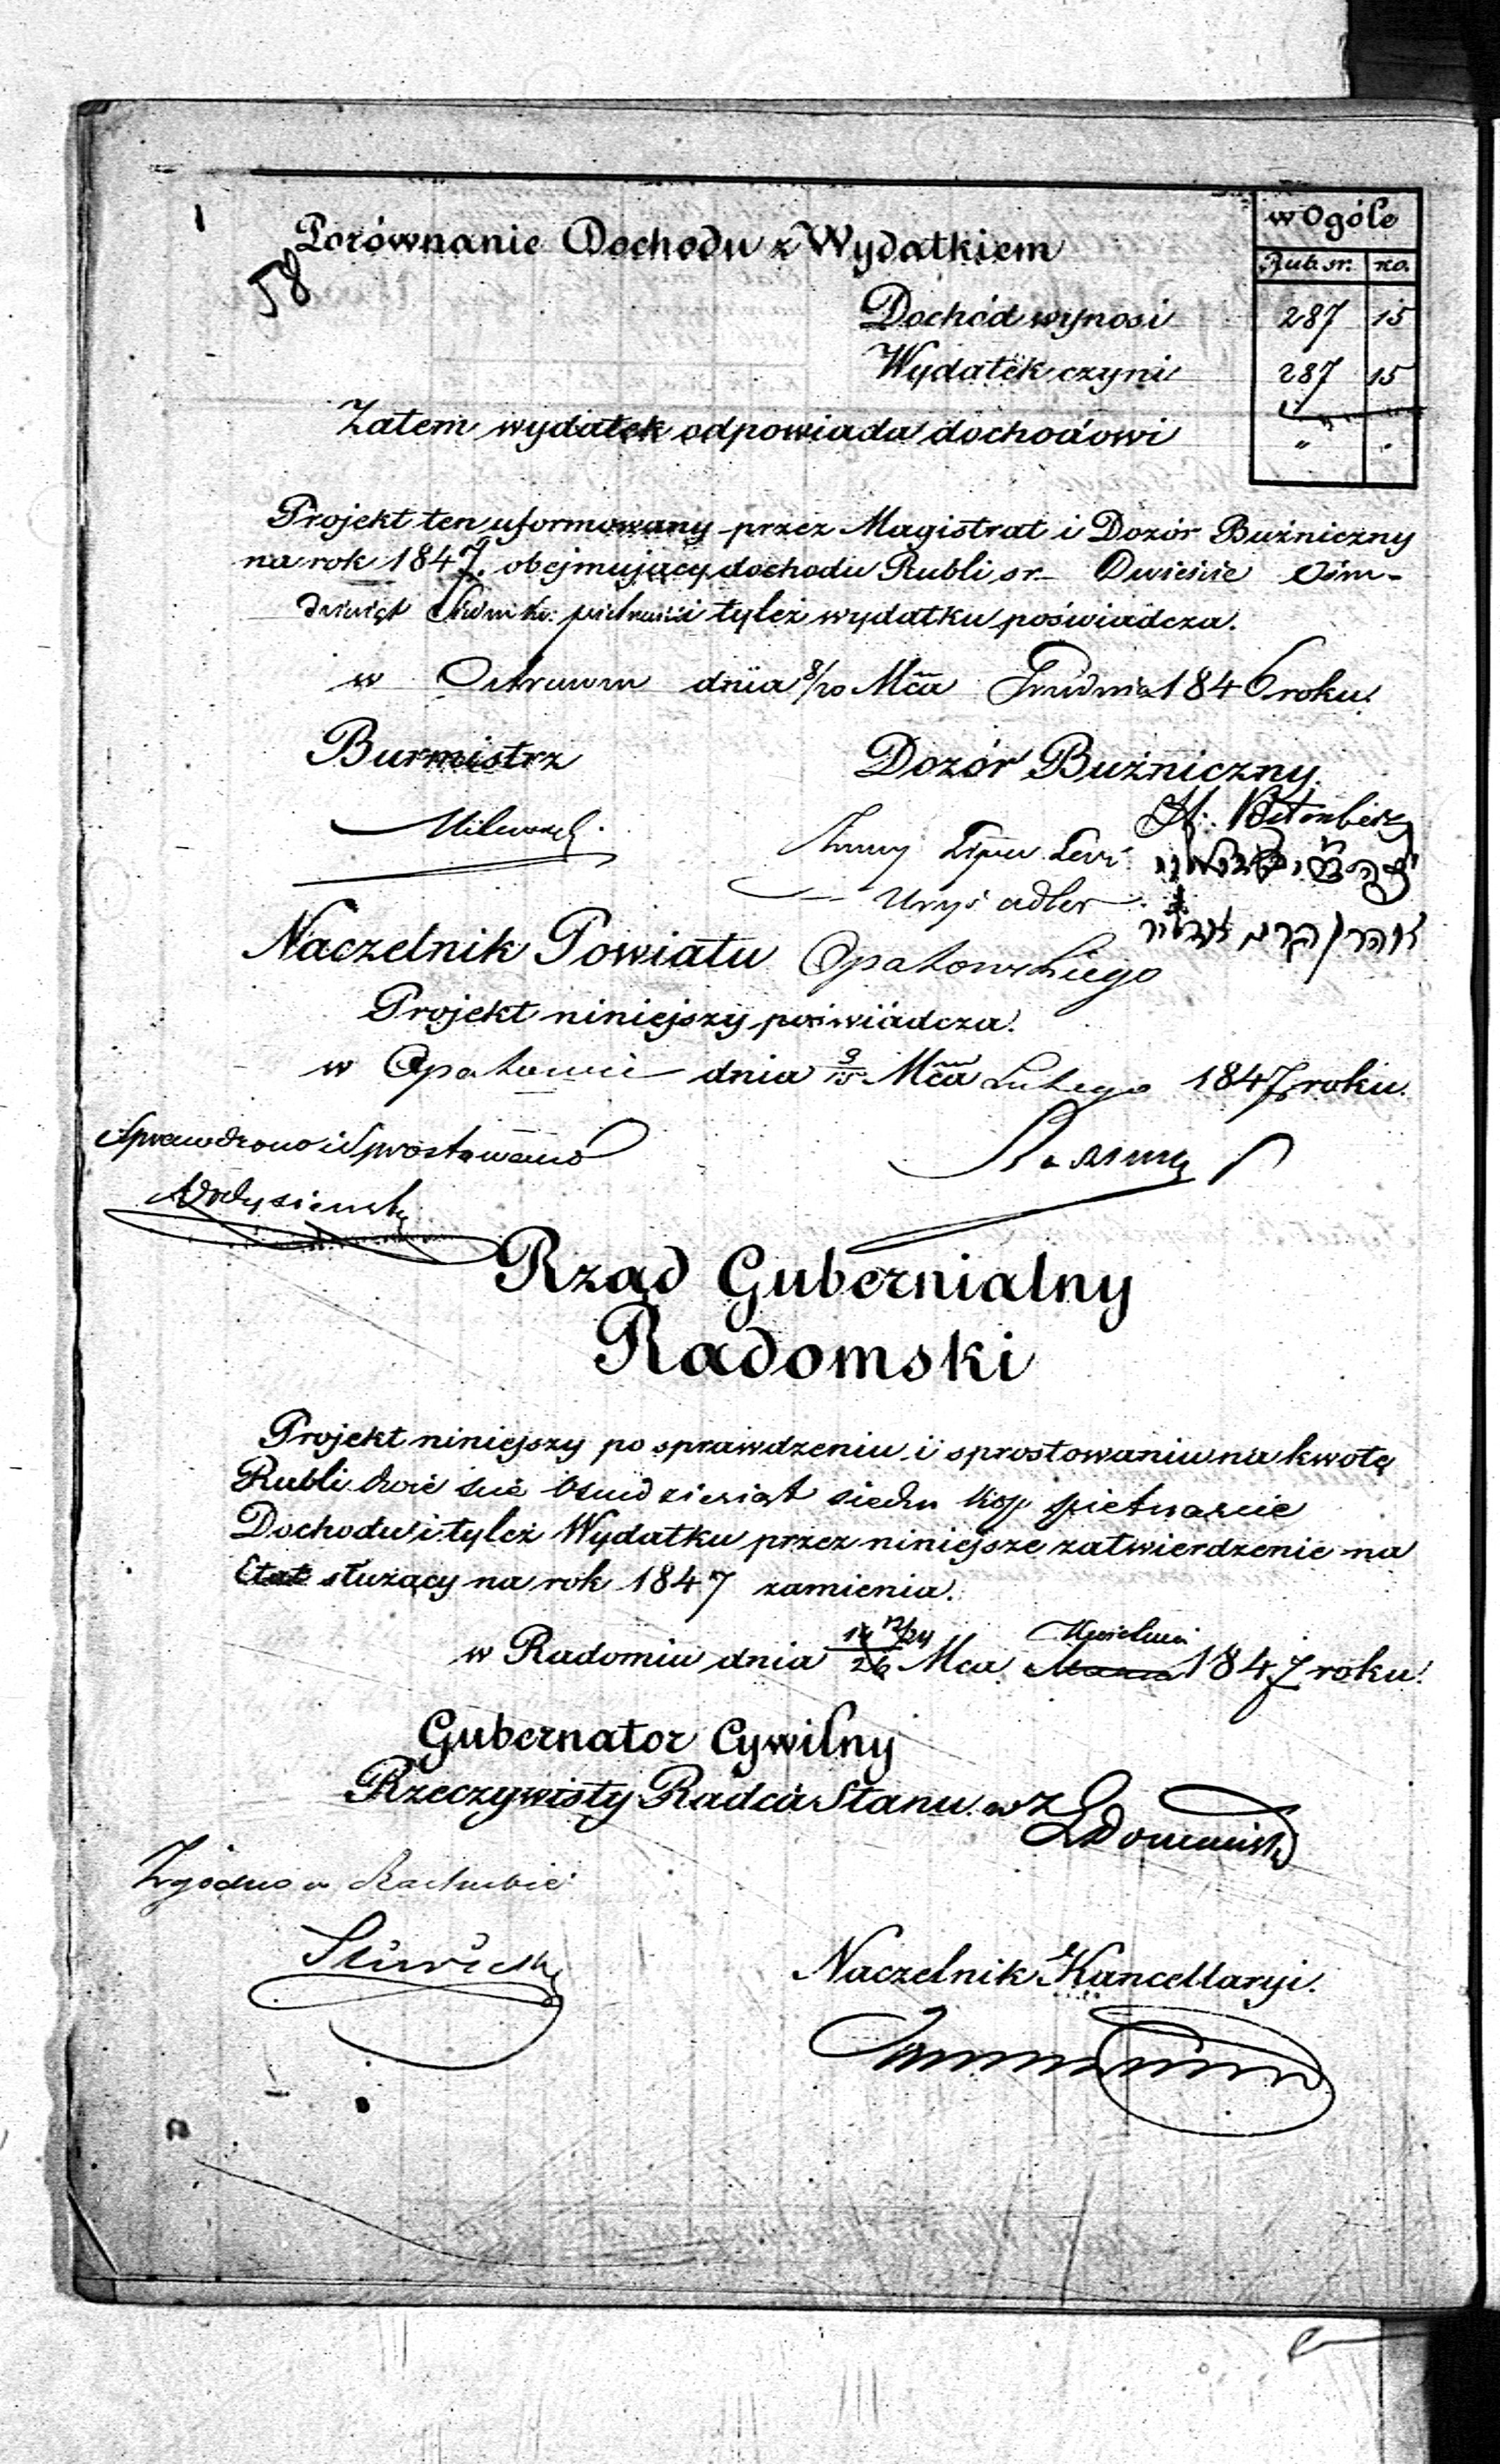 w Ogóle
Porównanie Dochodu z Wydatkiem
Rub. sr. ko.
58
Dochód wynosi 287 15
Wydatek czyni 287 15
Zatem wydatek odpowiada dochodowi " "
Projekt ten uformowany przez Magistrat i Dozór Bużniczny
na rok 1847. obejmujący dochodu Rubli sr. Dwieście Ośm-
dziesiąt tyleż wydatku poświadcza.
w dnia 8/20 Mca Grudnia 1846 roku.
Burmistrz Dozór Bużniczny.
Milewski
Lipa Levi
Uryś adler
Naczelnik Powiatu Opatowskiego
Projekt niniejszy poświadcza.
w Opatowie dnia 3/15 Mca Lutego 1847 roku.
Sprawdzono i Sprostowano
Rząd Gubernialny
Radomski
Projekt niniejszy po sprawdzeniu i sprostowaniu na kwotę
Rubli dwieście Osiemdziesiąt siedm kop piętnaście
Dochodu i tyleż Wydatku przez niniejsze zatwierdzenie na
Etat służący na rok 1847 zamienia.
w Radomiu dnia 12/24 Mca Kwietnia 1847 roku.
Gubernator Cywilny
Rzeczywisty Radca Stanu wz
Zgodno w Rachubie
Naczelnik Kancellaryi.